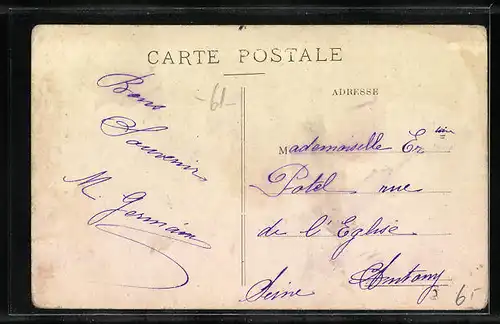 CARTE POSTALE
-61-
Bons
Souvenirs
M. Germain
ADRESSE
Mademoiselle
Potel rue
de l'Eglise
Antony
Seine
6.-